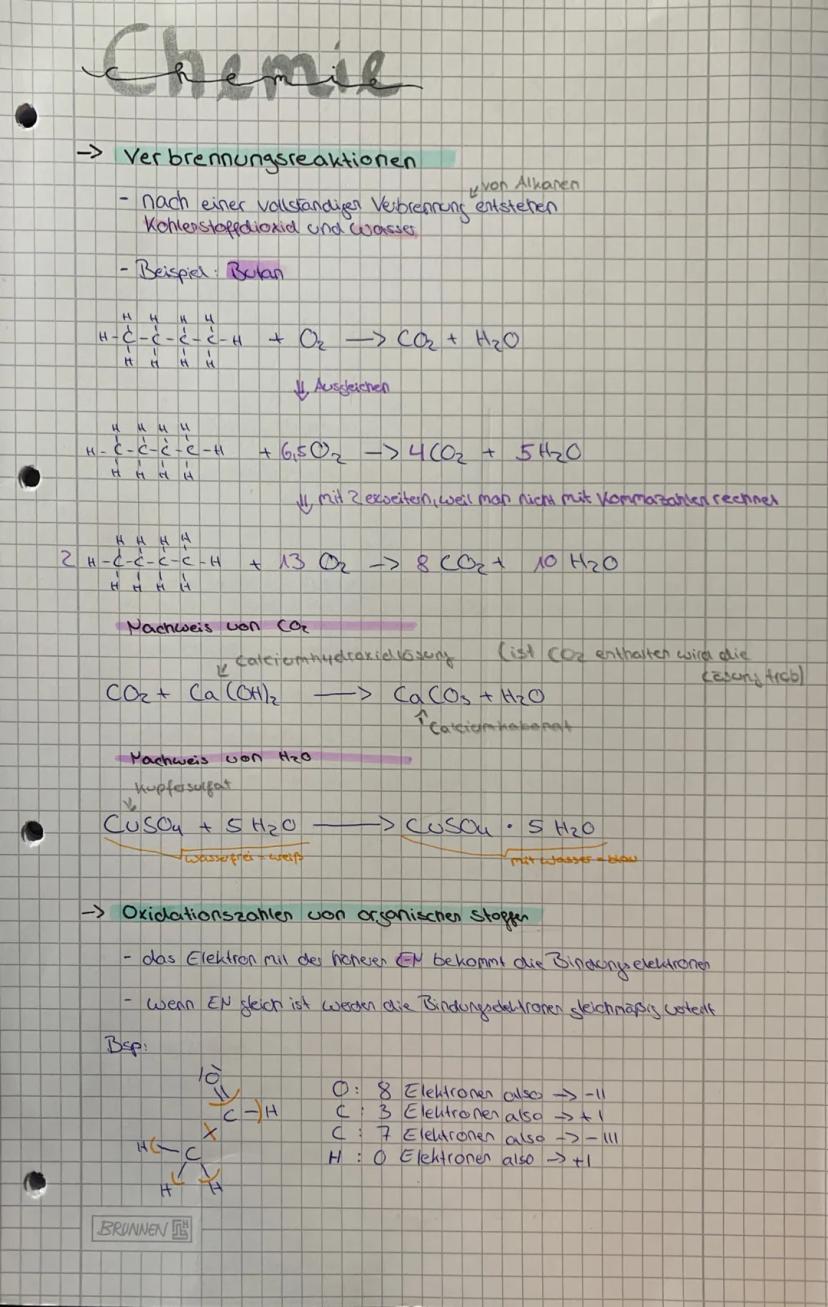 Chemie
chemie
-> Verbrennungsreaktionen
von Alkanen
- nach einer vollständigen Verbrennung entstehen
Kohlenstoffdioxid und Wasser
- Beispiel: Butan
H H H H
H-C-C-C-C-H + O₂ -> CO₂ + H₂O
H H H H
⇓ Ausgleichen
H H H H
H-C-C-C-C-H + 6,5O₂ -> 4CO₂ + 5H₂O
H H H H
⇓ mit 2 erweitern, weil man nicht mit Kommazahlen rechnet
H H H H
2 H-C-C-C-C-H + 13 O₂ -> 8 CO₂ + 10 H₂O
H H H H
Nachweis von CO₂
Calciumhydroxidlösung (ist CO₂ enthalten wird die
Lösung trüb)
CO₂ + Ca(OH)₂ -> CaCO₃ + H₂O
Calciumkabonat
Nachweis von H₂O
Kupfersulfat
CuSO₄ + 5 H₂O -> CuSO₄ · 5 H₂O
wasserfrei = weiß mit wasser = blau
-> Oxidationszahlen von organischen Stoffen
- das Elektron mit der höheren EN bekommt die Bindungselektronen
- wenn EN gleich ist werden die Bindungselektronen gleichmäßig verteilt
Bsp:
O
C-H
H-C
H H
O: 8 Elektronen also -> -II
C: 3 Elektronen also -> +I
C: 7 Elektronen also -> -III
H: 0 Elektronen also -> +I
BRUNNEN